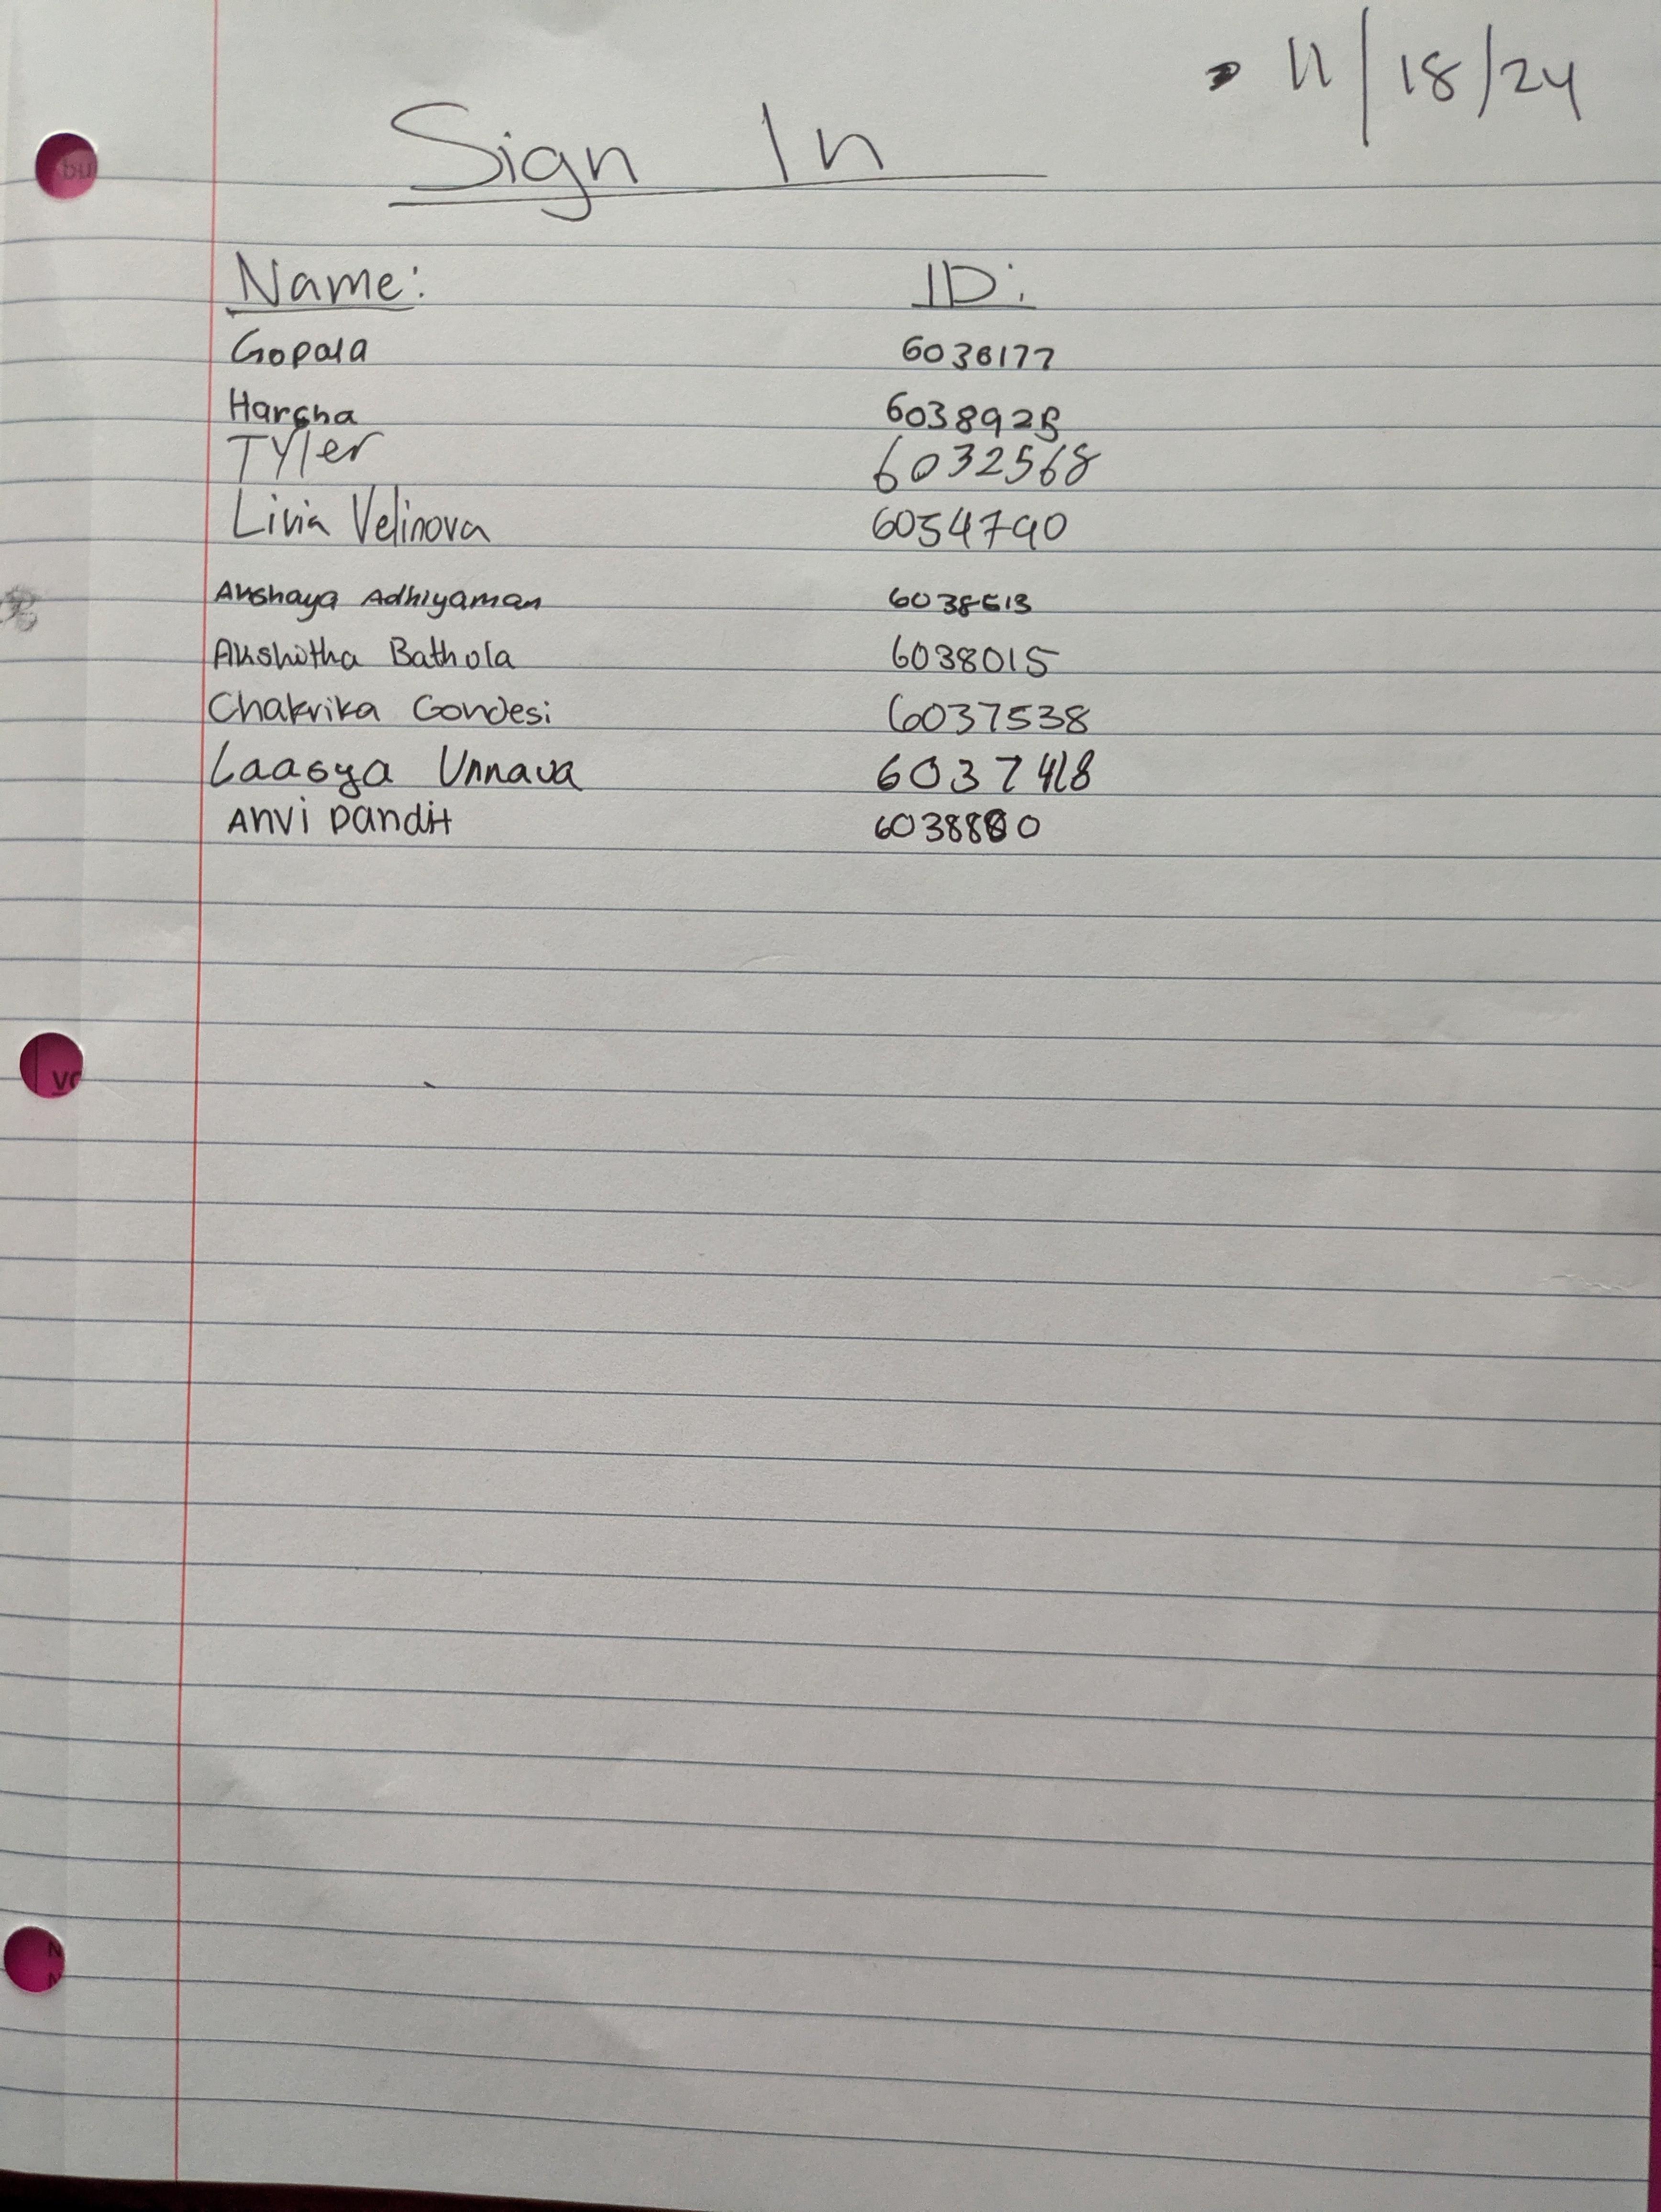 11/18/24
Sign In
Name: ID:
Gopala 6036177
Harsha
Tyler 6032568
Livia Velinova 6054790
Akshaya Adhiyaman
Akshitha Bathola 6038015
Chakrika Gondesi 6037538
Laasya Unnava 6037418
Anvi Pandit 6038880
bu